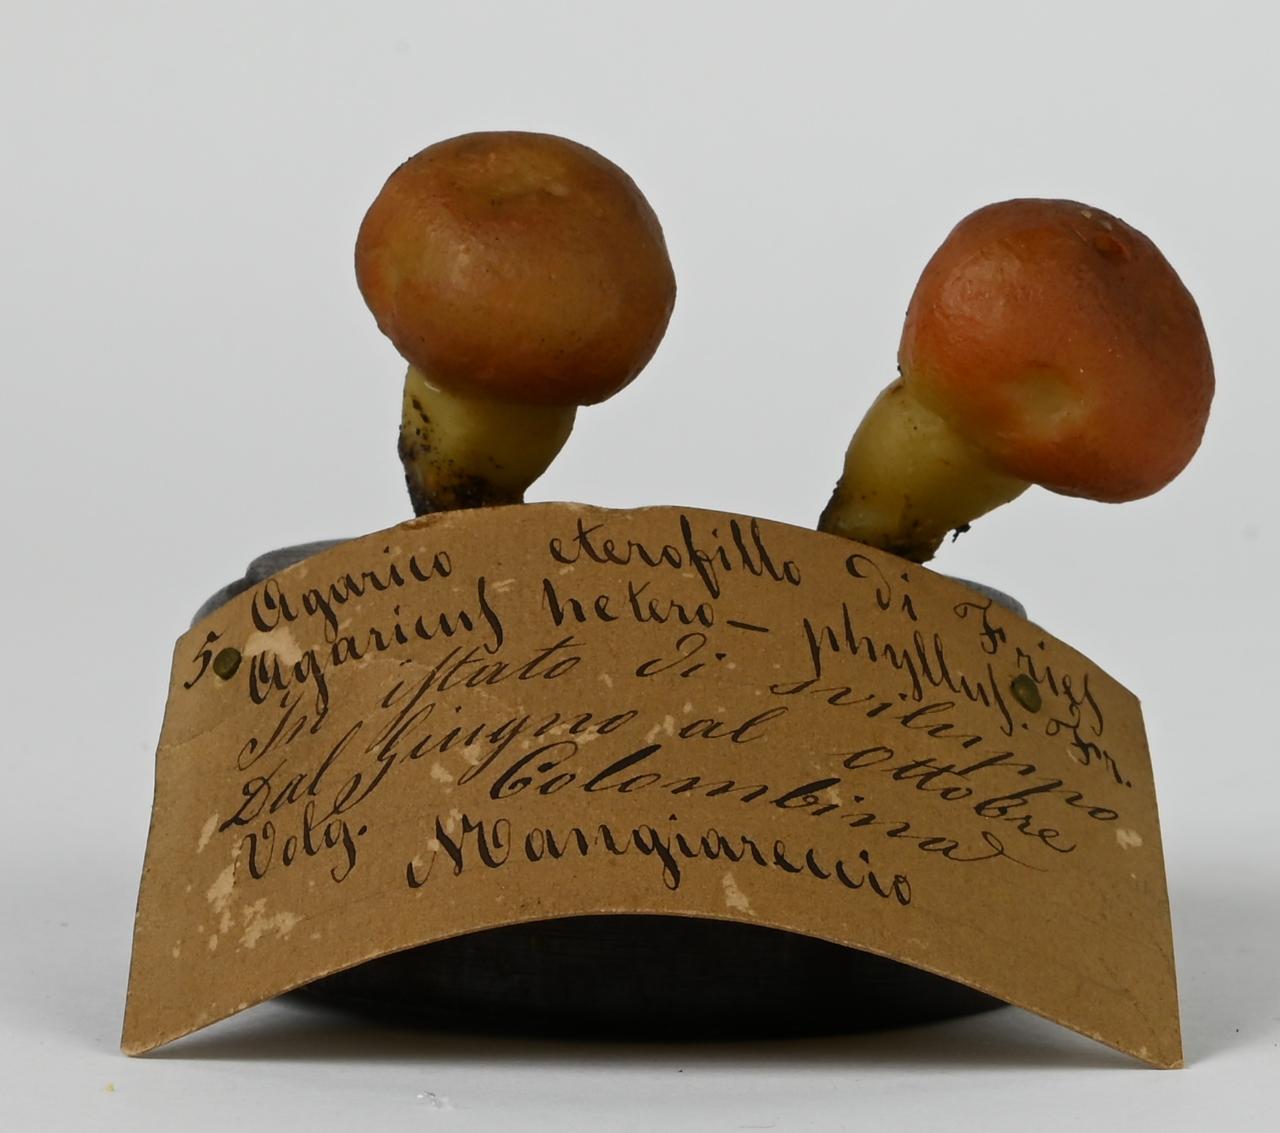 5. Agarico eterofillo di Fries
Agaricus hetero-phyllus. Fr.
In istato di sviluppo
Dal Giugno al Ottobre
Volg. Colombina
Mangiareccio